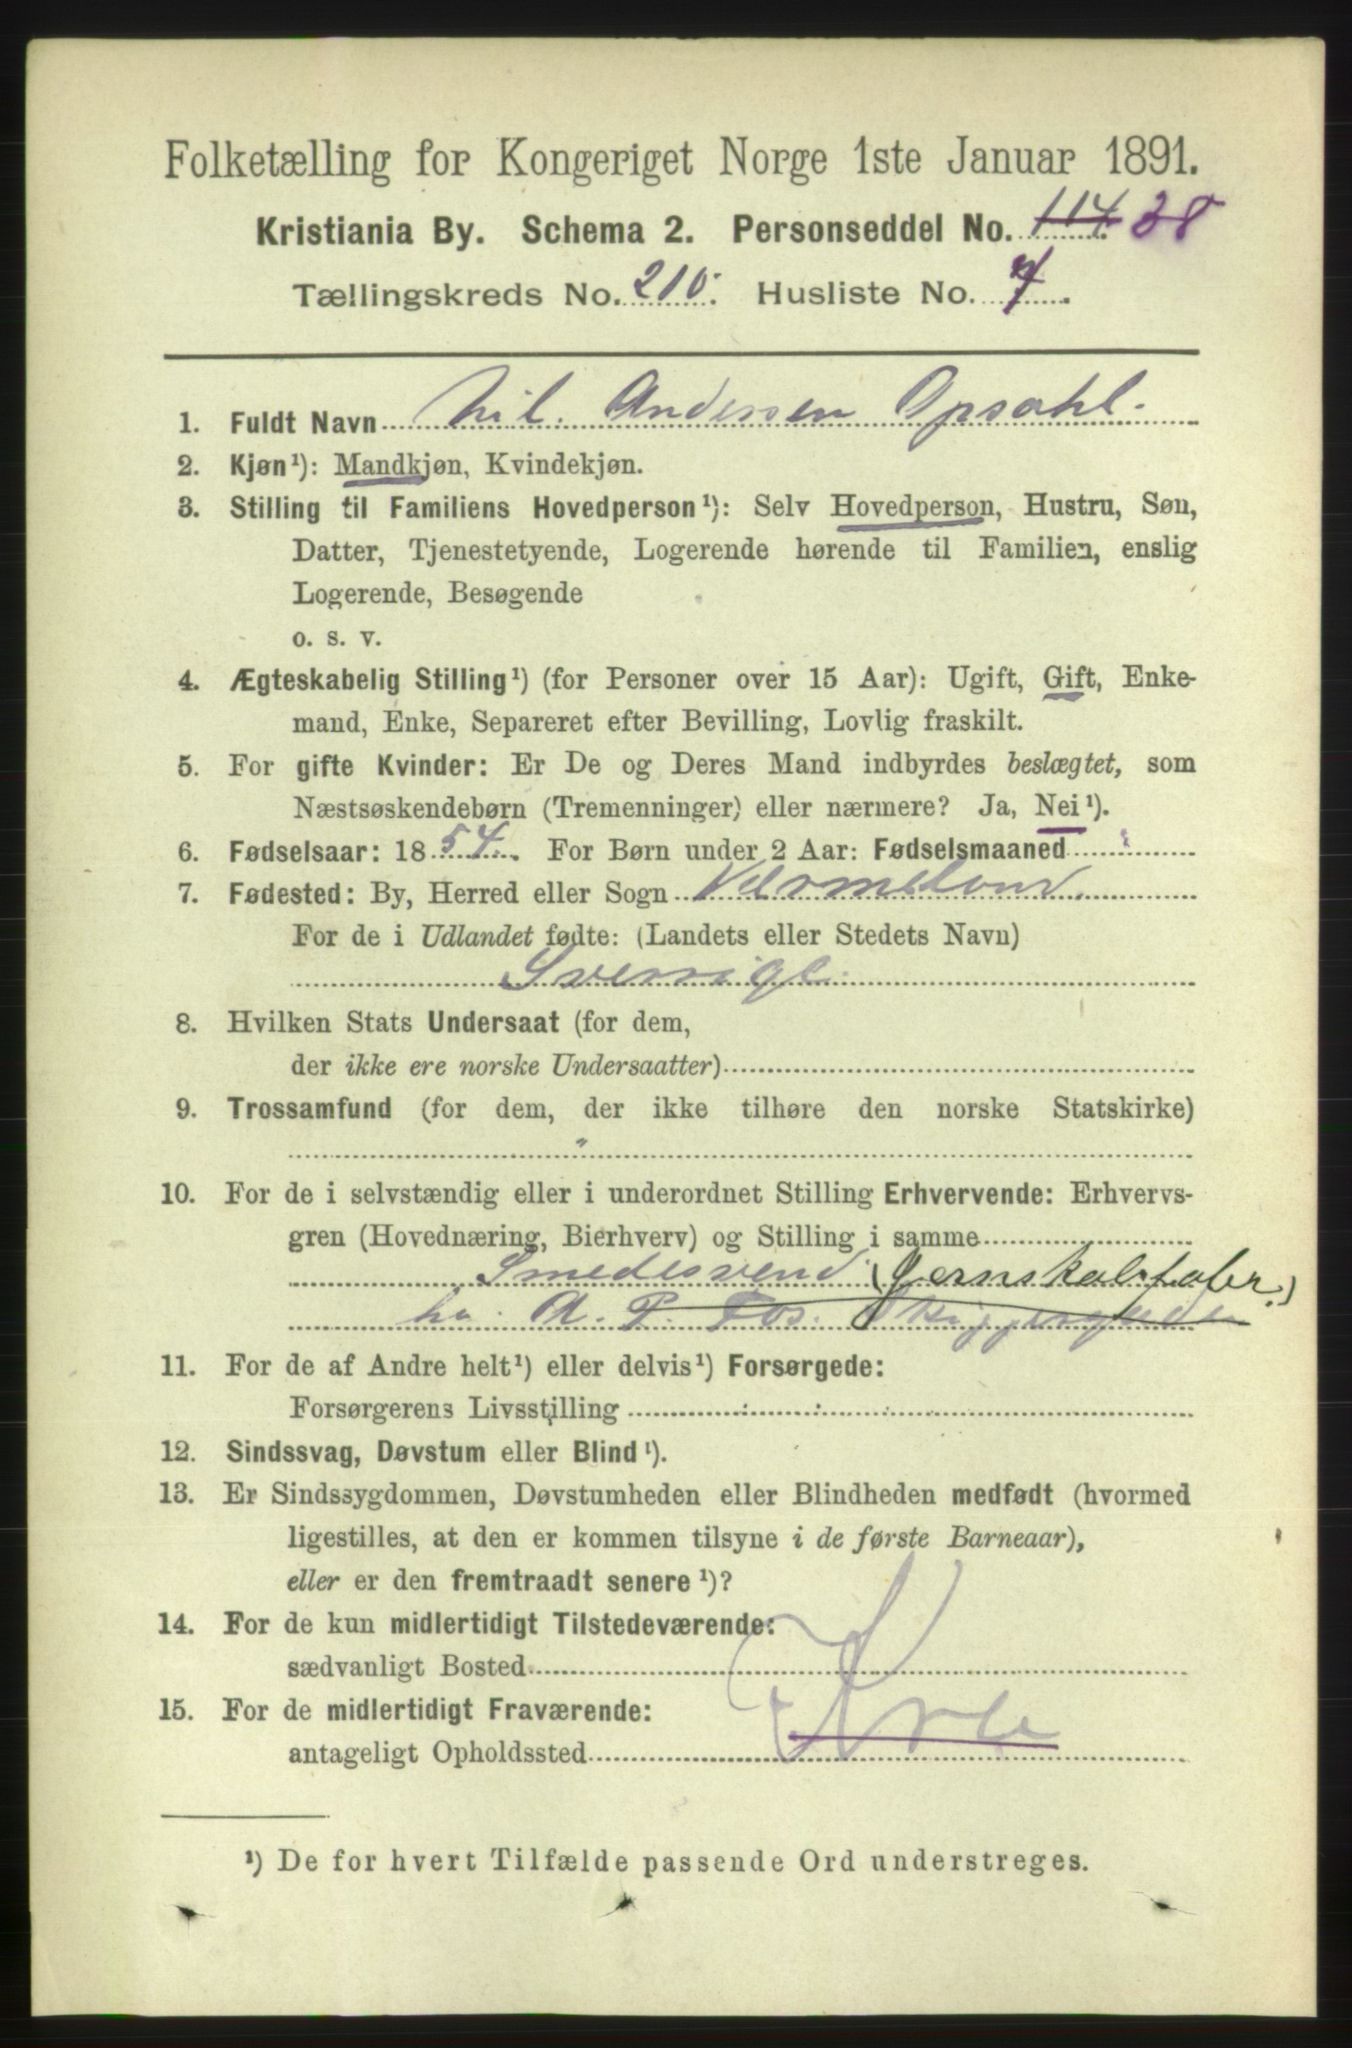 Folketælling for Kongeriget Norge 1ste Januar 1891.
Kristiania By. Schema 2. Personseddel No. 114 38
Tællingskreds No. 210. Husliste No. 7.
1. Fuldt Navn Nil. Andersen Opsahl.
2. Kjøn¹): Mandkjøn, Kvindekjøn.
3. Stilling til Familiens Hovedperson¹): Selv Hovedperson, Hustru, Søn,
Datter, Tjenestetyende, Logerende hørende til Familien, enslig
Logerende, Besøgende
o. s. v.
4. Ægteskabelig Stilling¹) (for Personer over 15 Aar): Ugift, Gift, Enke-
mand, Enke, Separeret efter Bevilling, Lovlig fraskilt.
5. For gifte Kvinder: Er De og Deres Mand indbyrdes beslægtet, som
Næstsøskendebørn (Tremenninger) eller nærmere? Ja, Nei¹).
6. Fødselsaar: 1854. For Børn under 2 Aar: Fødselsmaaned
7. Fødested: By, Herred eller Sogn Vermeland.
For de i Udlandet fødte: (Landets eller Stedets Navn)
Sverrige.
8. Hvilken Stats Undersaat (for dem,
der ikke ere norske Undersaatter)
9. Trossamfund (for dem, der ikke tilhøre den norske Statskirke)
10. For de i selvstændig eller i underordnet Stilling Erhvervende: Erhvervs-
gren (Hovednæring, Bierhverv) og Stilling i samme
Smedesvend (Jernskabsfabr.)
hr A. P. Fos.
11. For de af Andre helt¹) eller delvis¹) Forsørgede:
Forsørgerens Livsstilling
12. Sindssvag, Døvstum eller Blind¹).
13. Er Sindssygdommen, Døvstumheden eller Blindheden medfødt (hvormed
ligestilles, at den er kommen tilsyne i de første Barneaar),
eller er den fremtraadt senere¹)?
14. For de kun midlertidigt Tilstedeværende:
sædvanligt Bosted
15. For de midlertidigt Fraværende:
antageligt Opholdssted
¹) De for hvert Tilfælde passende Ord understreges.